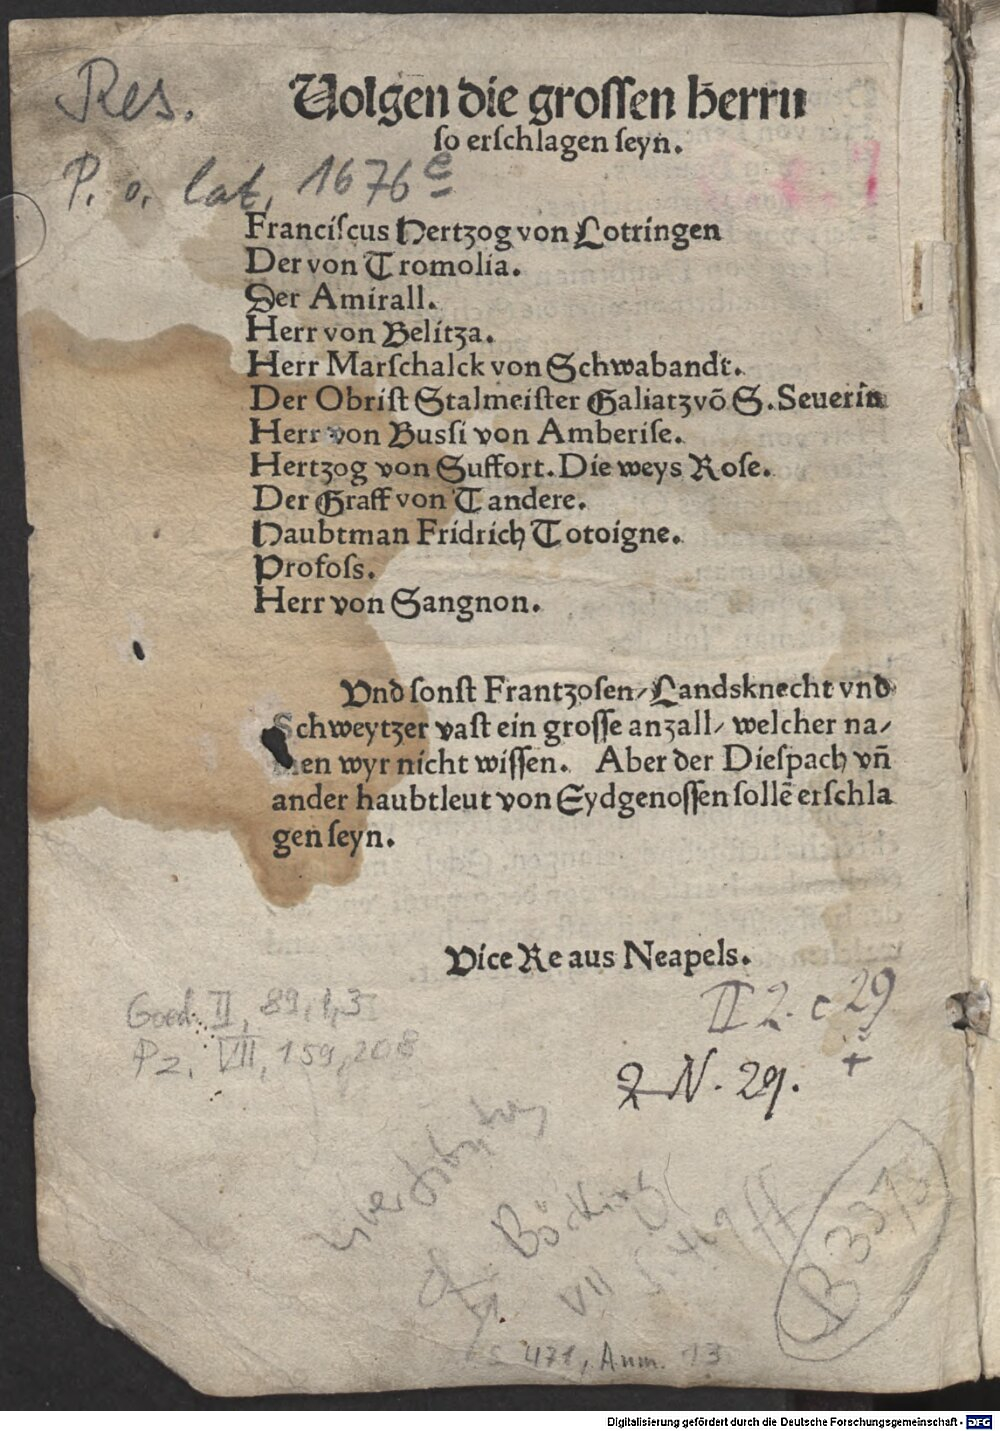 Res.
Uolgen die grossen herrn
so erschlagen seyn.
P. o. lat. 1676 e
Franciſcus Hertzog von Lotringen
Der von Tromolia.
Der Amirall.
Herr von Belitza.
Herr Marſchalck von Schwabandt.
Der Obriſt Stalmeiſter Galiatz võ S. Seuerin
Herr von Buſſi von Amberiſe.
Hertzog von Suffort. Die weys Roſe.
Der Graff von Tandere.
Haubtman Fridrich Totoigne.
Profoſs.
Herr von Sangnon.
Vnd ſonſt Frantzoſen/ Landsknecht vnd
Schweytzer vaſt ein groſſe anzall/ welcher na/
men wyr nicht wiſſen. Aber der Dieſpach vñ
ander haubtleut von Eydgenoſſen ſollẽ erſchla
gen ſeyn.
Vice Re aus Neapels.
II 2. c 29
Goed. II, 89, 1, 3
Pz. VII, 159, 208
2 N. 29. +
Böcking
VII S. 419 ff
B 337
S 471, Anm. 13
Digitalisierung gefördert durch die Deutsche Forschungsgemeinschaft - DFG